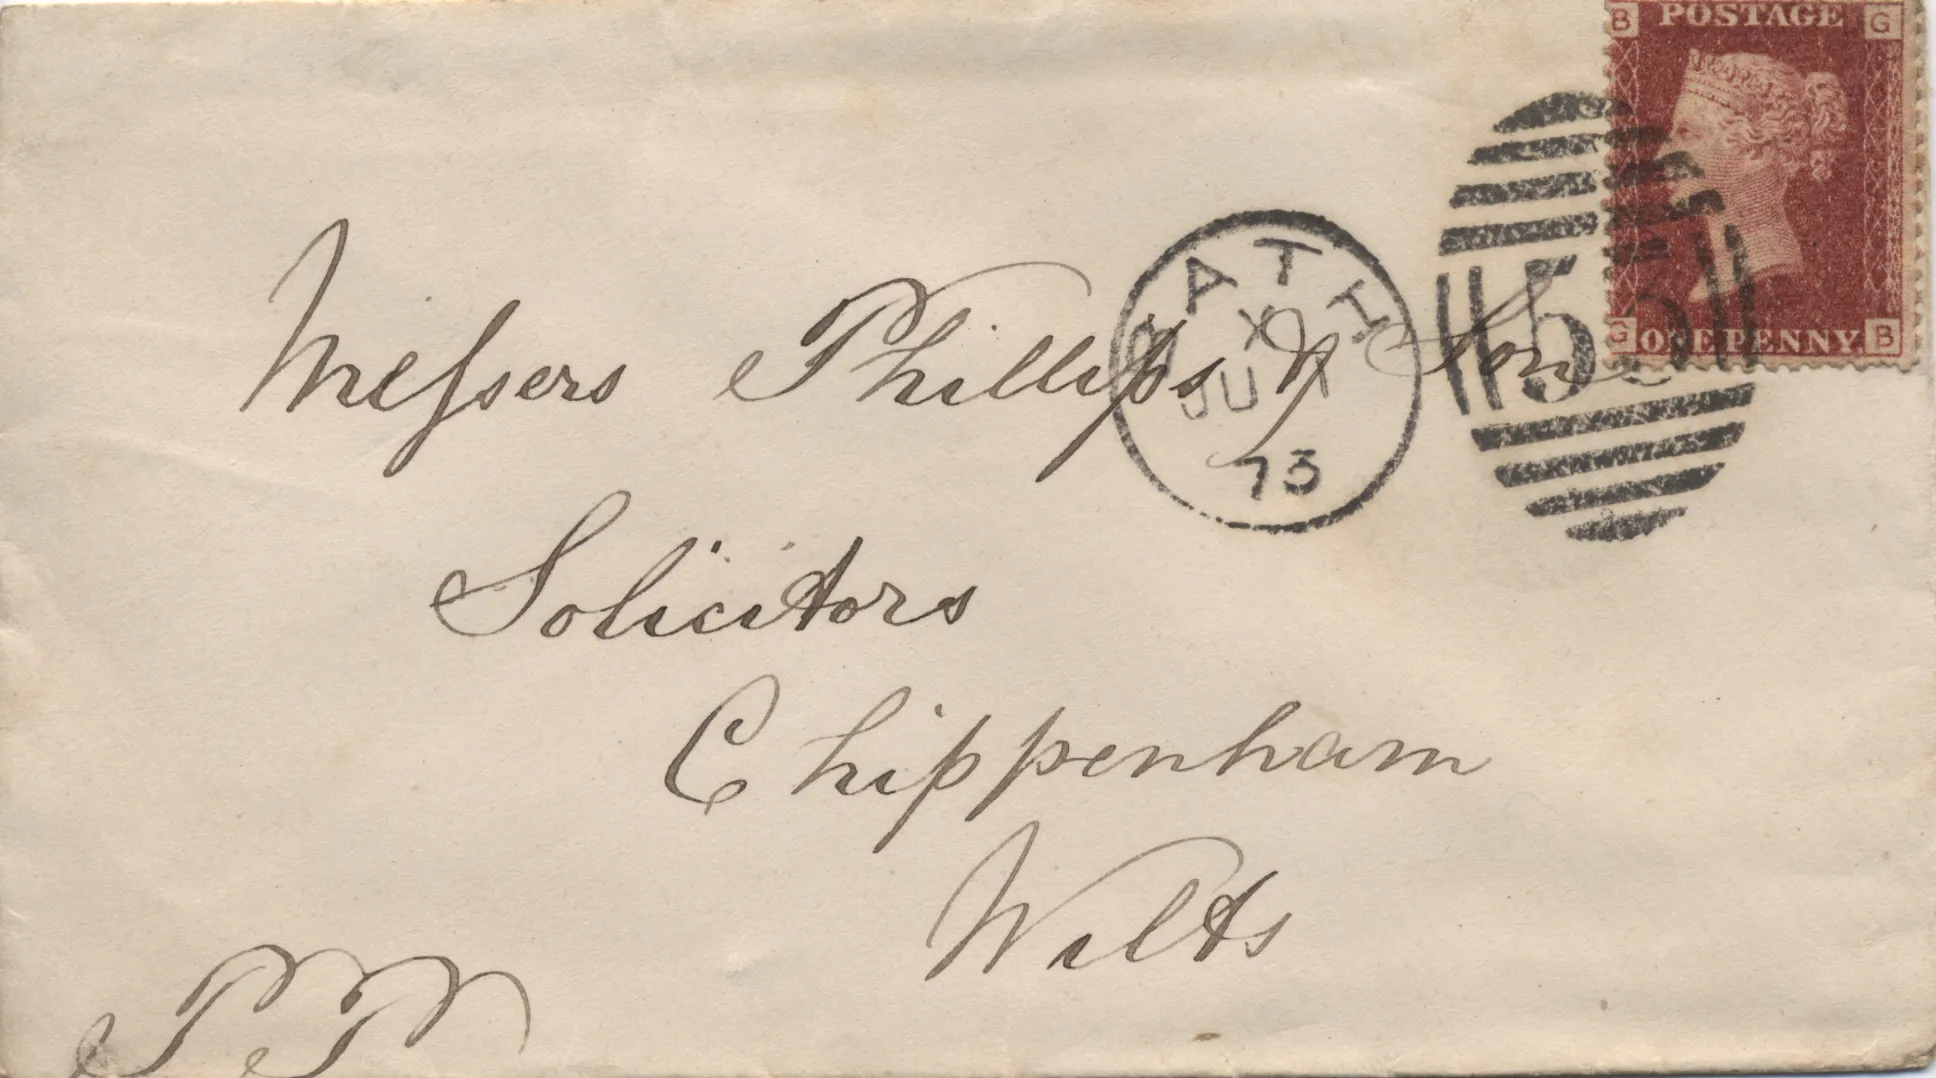 B POSTAGE G
G ONE PENNY B
BATH
X
JU 7
73
53
Messers Phillips & Son
Solicitors
Chippenham
Wilts